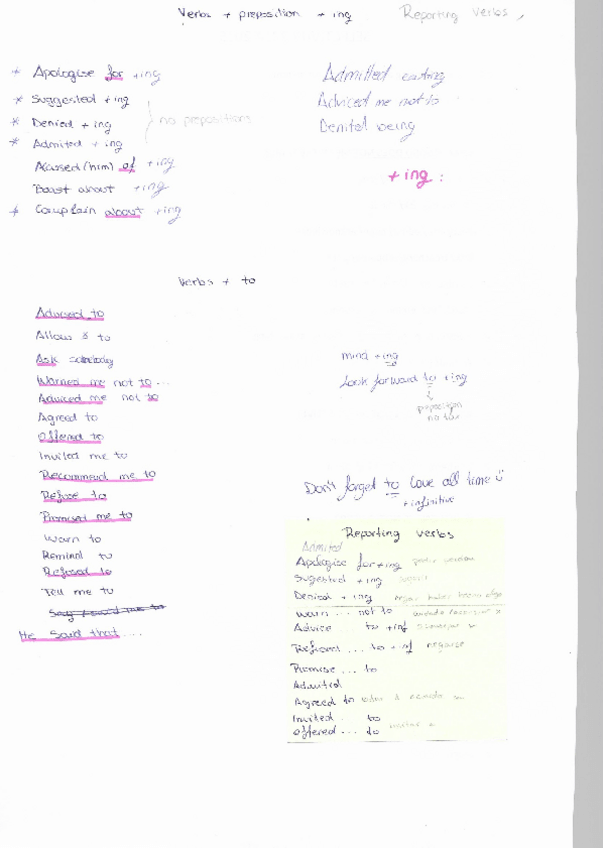 Verbs + preposition + ing
Reporting Verbs
* Apologise for +ing
* Suggested +ing
* Denied + ing
* Admited + ing
no preposition
Acused (him) of +ing
Boast about +ing
* Complain about +ing
Admitted eating
Adviced me not to
Denited being
+ ing :
Verbs + to
Advised to
Allow to
Ask somebody
Warned me not to ...
Adviced me not to
Agreed to
Offered to
Invited me to
Recommend me to
Refuse to
Promised me to
Warn to
Remind to
Refused to
Tell me to
He said that ....
mind +ing
Look forward to +ing
preposition
no to
Don't forget to love all time
+ infinitive
Reporting verbs
Admited
Apologise for+ing
Sugested +ing
Denied + ing
Warn ... not to
Advice to +inf
Refused ... to + inf
Promise ... to
Admited
Agreed to
Invited to
Offered ... to